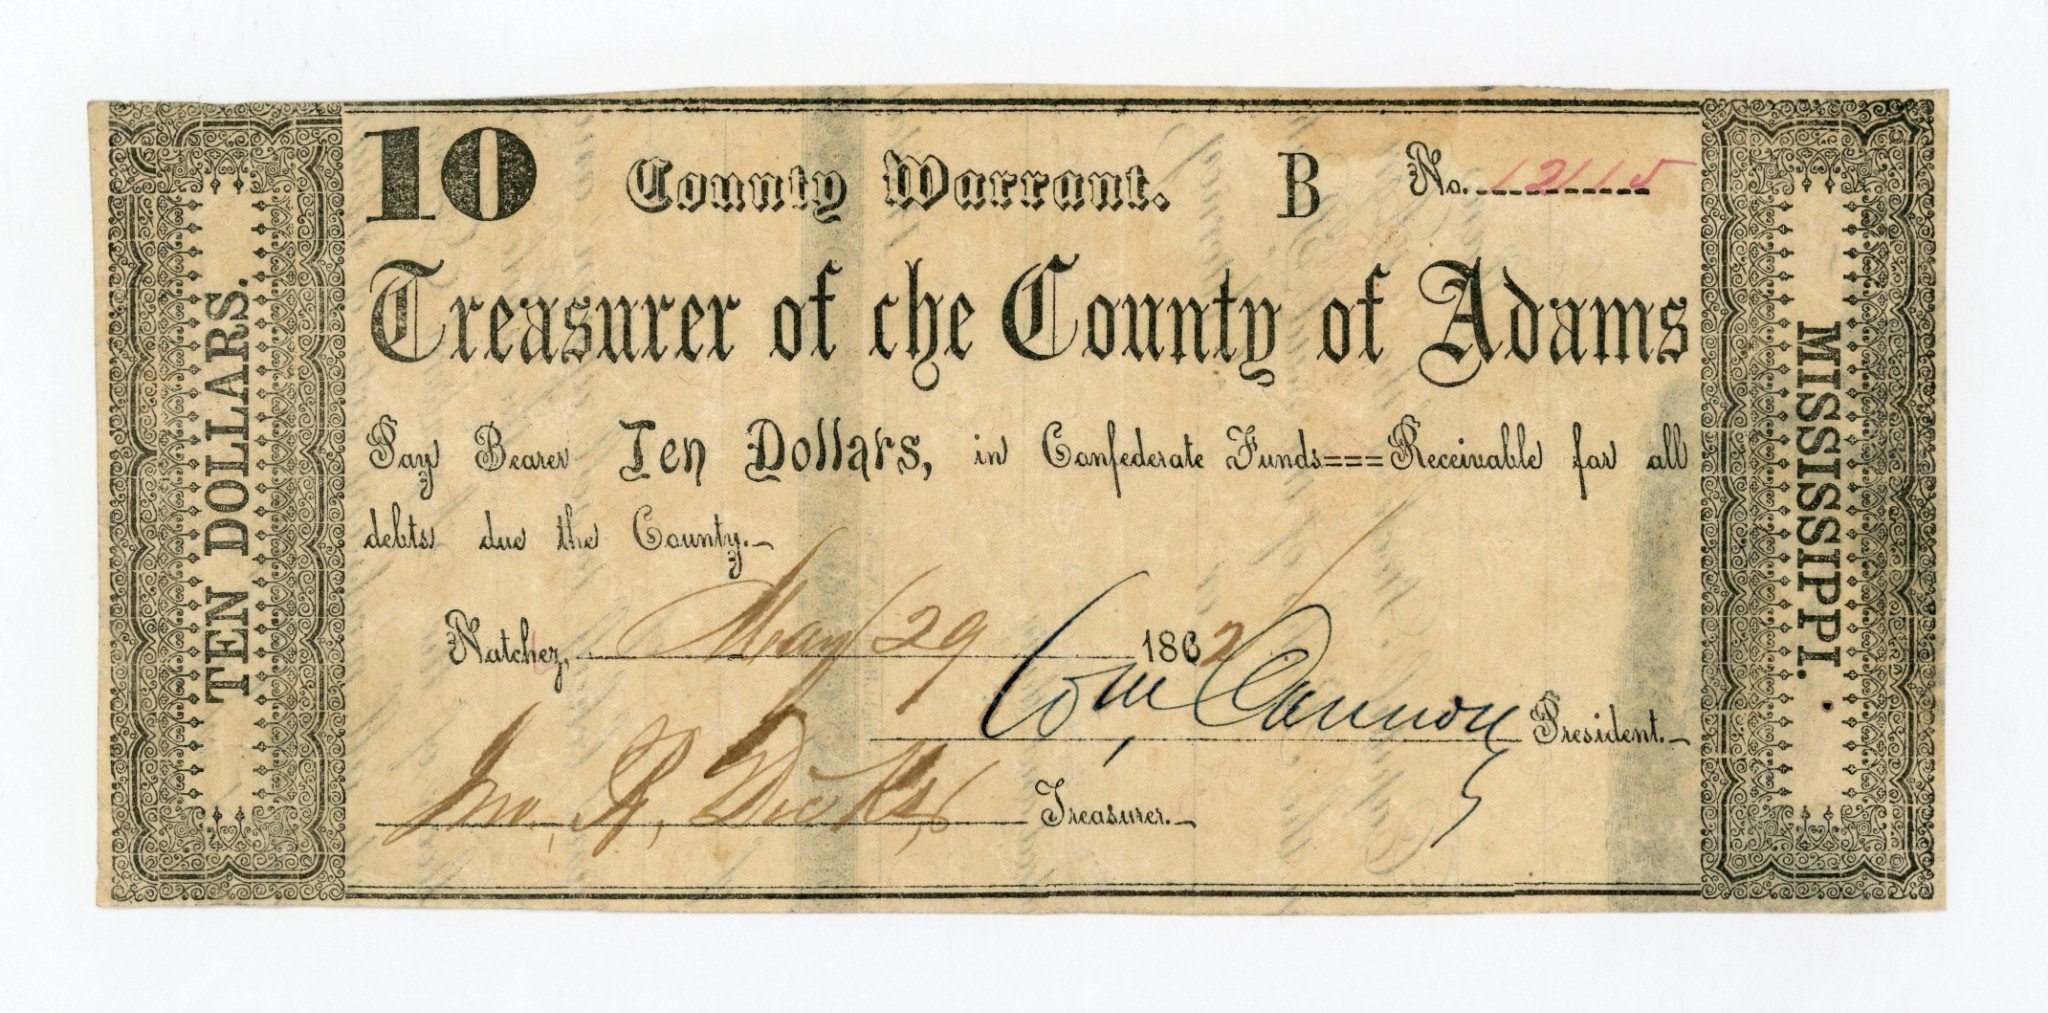 TEN DOLLARS.
10 County Warrant. B No. 12115
Treasurer of the County of Adams
Pay Bearer Ten Dollars, in Confederate Funds===Receivable for all
debts due the County.
Natchez, May 29 1862
Cannon President.
Jno. R. Dicks, Treasurer.
MISSISSIPPI.